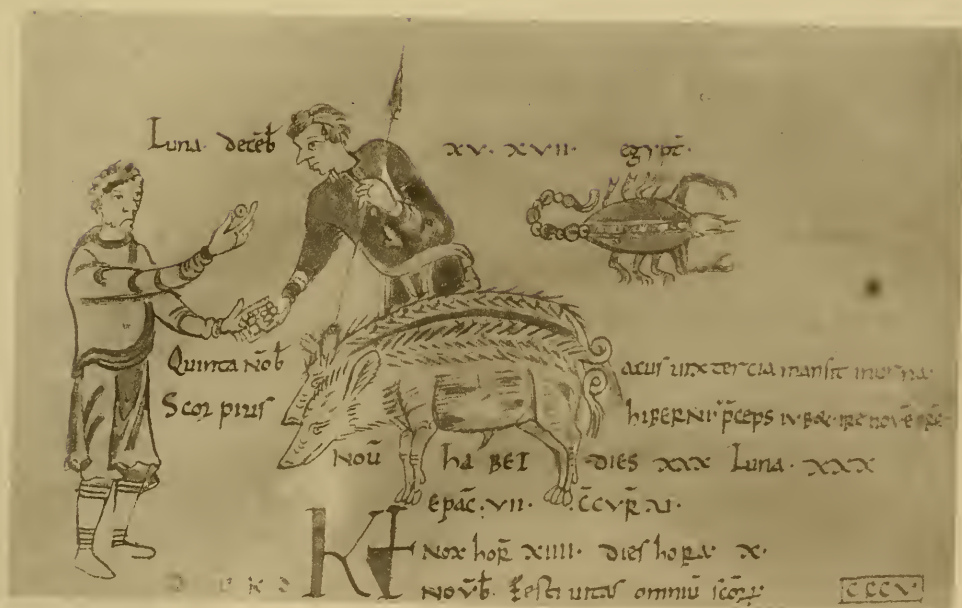 Luna. deceb̄ xv. xvii. egypt̄.
Quinta Nōb̄ acus unx tercia mansit in urna.
Scorpius hiBERNI p̄ceps
NOV̄ ha BET DIES XXX Luna. XXX
EPAC̄. VII. C̄CVR̄ XI.
Kł Nox hor̄ XIIII. Dies hora X.
NOV̄b̄. Festiuitas omniū scōrꝝ